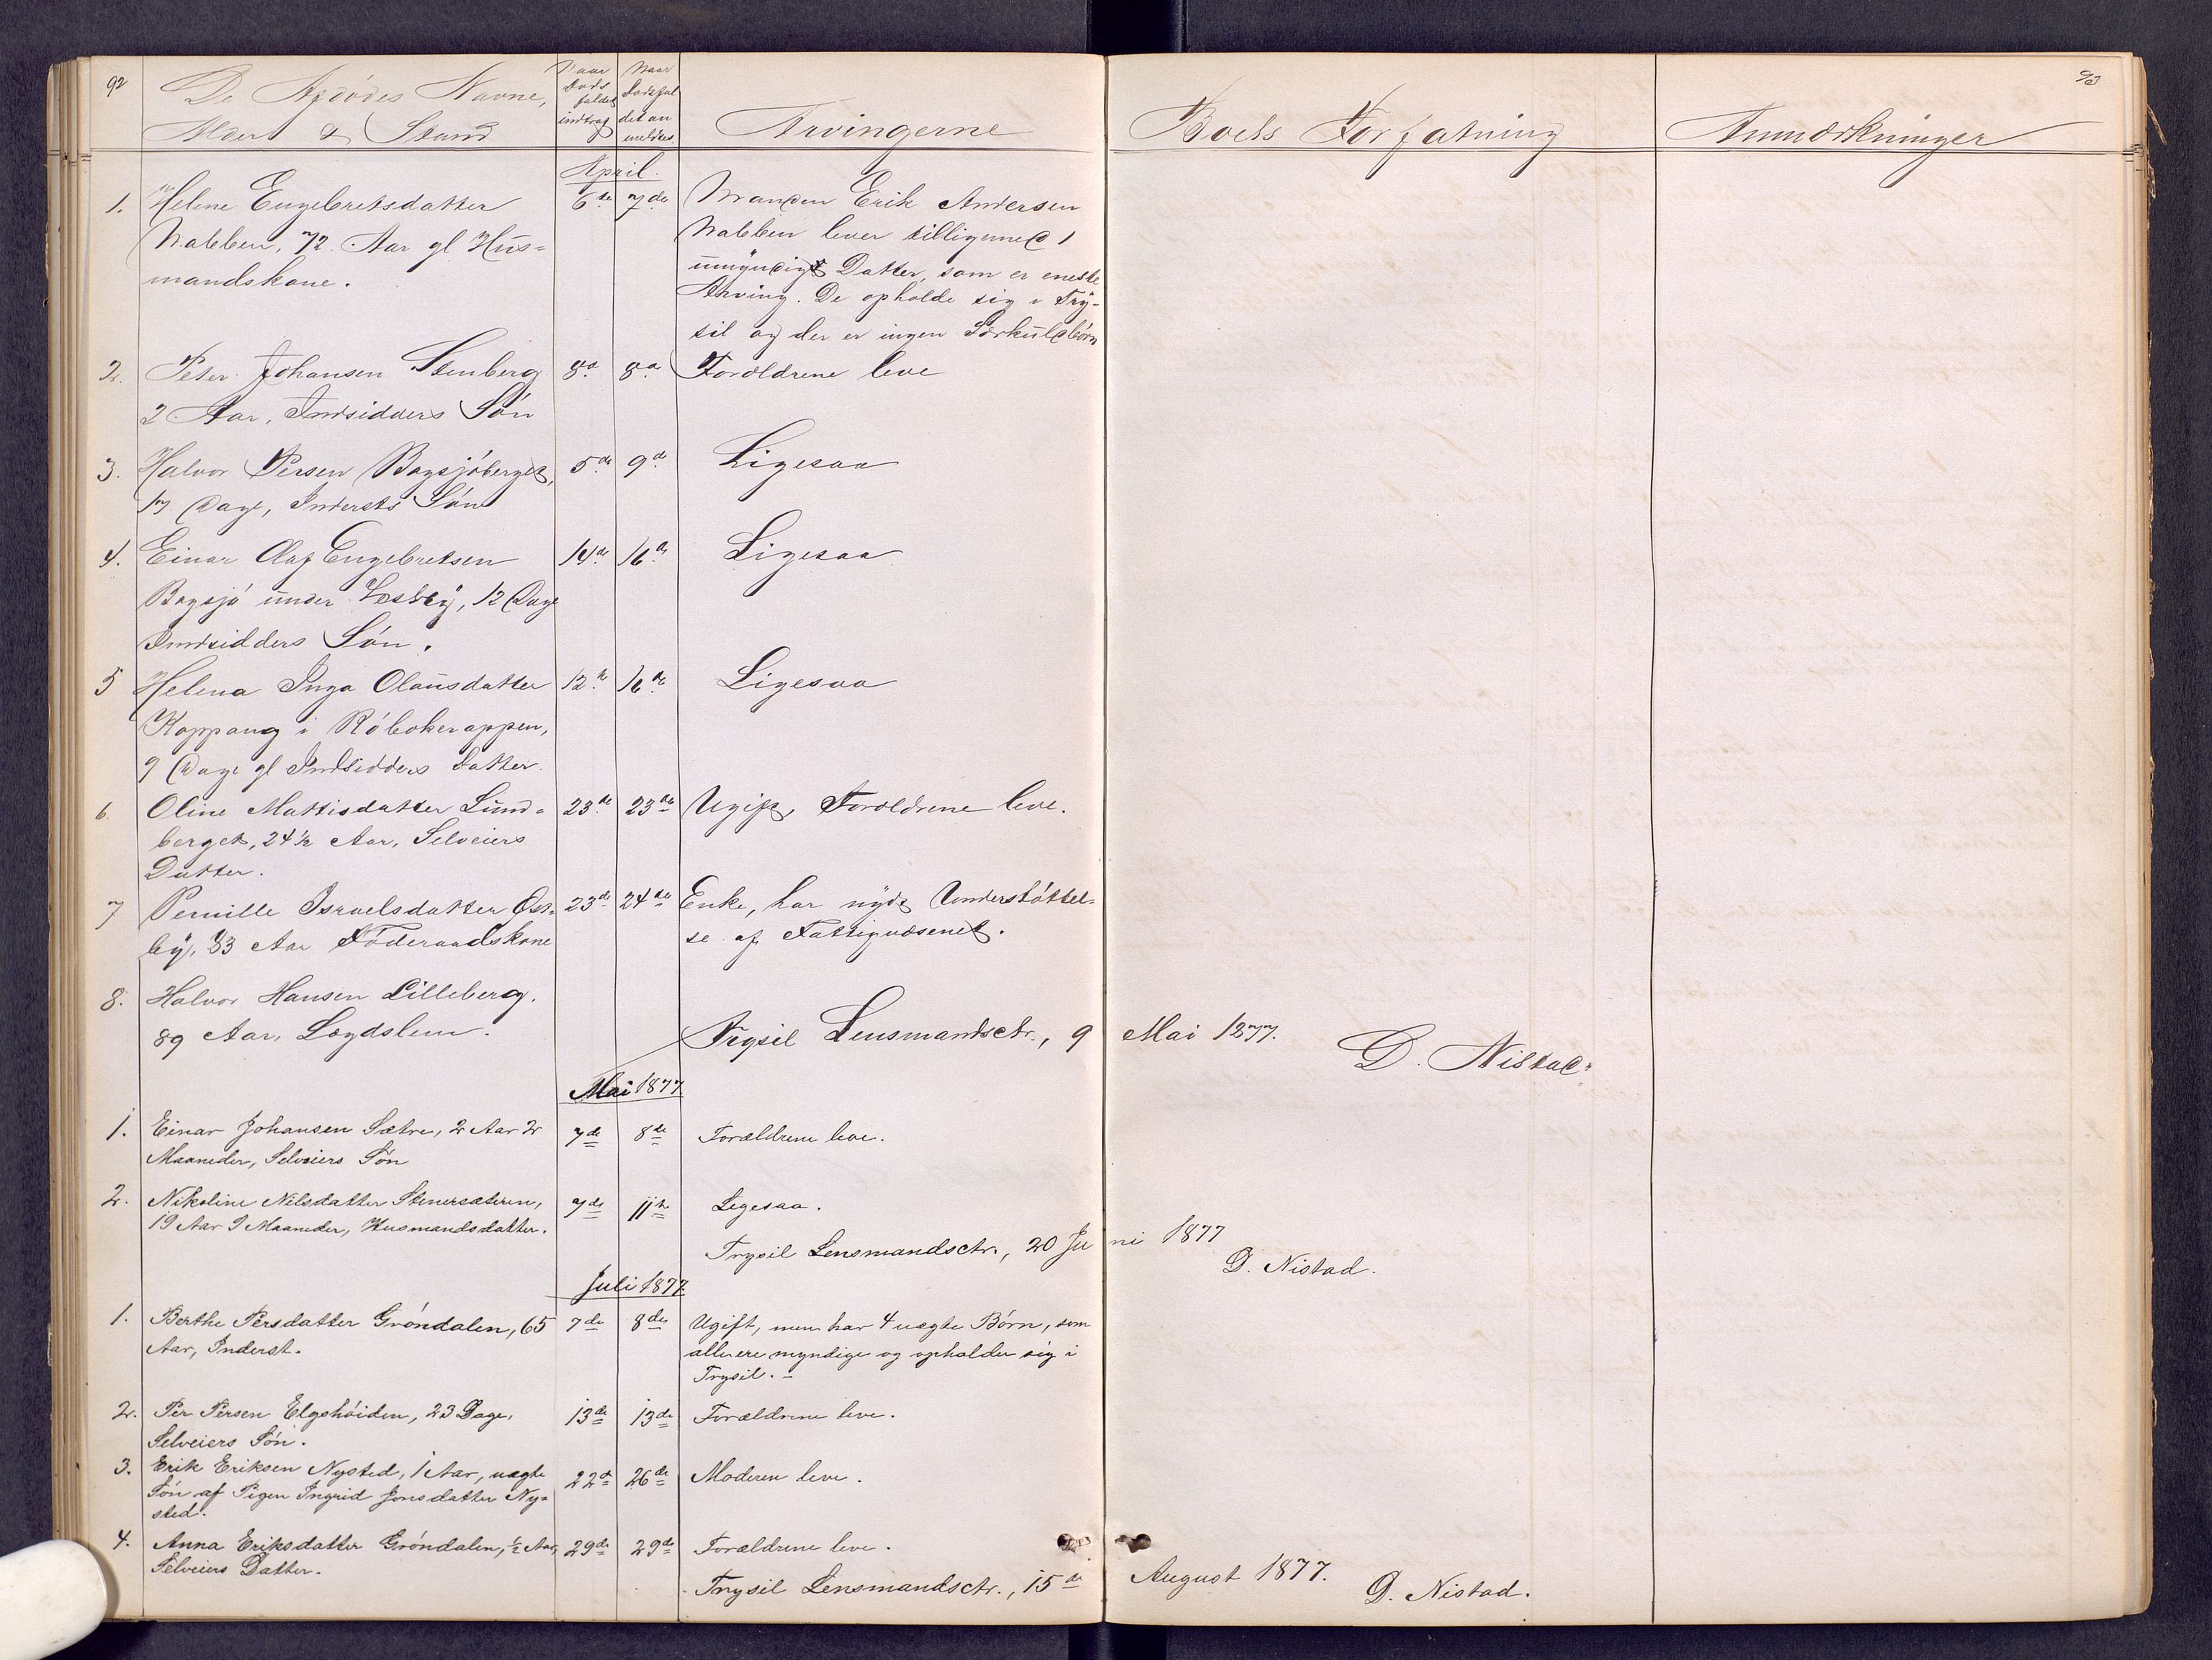 92
De Afdødes Navne,
Alder & Stand
Naar
Døds
faldet
indtraf
Naar
Dødsfal
det an
meldtes
Arvingerne
Boets Forfatning
Anmærkninger
93
April.
1. Helene Engebretsdatter 6te 7de Manden Erik Andersen
Nabben, 72 Aar gl Hus= Nabben lever tilligemed 1
umyndigt Datter, som er eneste
mandskone.
Arving. De opholde sig i Try=
sil og der er ingen Særkuldbørn
2. Peter Johansen Stenberg 8de 8de Forældrene leve
2 Aar, Indsidders Søn
3. Halvor Persen Bagsjøberget, 5de 9de Ligesaa
17 Dage, Indersts Søn
4. Einar Olaf Engebretsen 14de 16de Ligesaa
Bagsjø under Østby, 12 Dage
Indsidders Søn.
5 Helena Inga Olausdatter 12te 16de Ligesaa
Koppang i Røbækerappen,
9 Dage gl Indsidders Datter.
6. Oline Mattisdatter Lund= 23de 23de Ugift, Forældrene leve.
berget, 24½ Aar, Selveiers
Datter.
7 Pernille Israelsdatter Øst= 23de 24de Enke, har nydt Understøttel=
by, 83 Aar Føderaadskone se af Fattigvæsenet.
8. Halvor Hansen Lilleberg.
89 Aar, Lægdslem. Trysil Lensmandsctr., 9 Mai 1877.
D. Nistad.
Mai 1877
1. Einar Johansen Sætre, 2 Aar 2 7de 8de Forældrene leve.
Maaneder, Selveiers Søn
2. Nikoline Nilsdatter Stenersæteren, 7de 11te Ligesaa.
19 Aar 9 Maaneder, Husmandsdatter.
Trysil Lensmandsctr., 20 Juni 1877
D. Nistad.
Juli 1877
1. Berthe Persdatter Grøndalen, 65 7de 8de Ugift, men har 4 uægte Børn, som
Aar, Inderst. alle ere myndige og opholder sig i
Trysil.
2. Per Persen Elgshøiden, 23 Dage, 13de 13de Forældrene leve.
Selveiers Søn.
3. Erik Eriksen Nysted, 1 Aar, uægte 22de 26de Moderen leve.
Søn af Pigen Ingrid Jonsdatter Ny=
sted.
4. Anna Eriksdatter Grøndalen, ½ Aar, 29de 29de Forældrene leve.
Selveiers Datter.
Trysil Lensmandsctr., 15de August 1877.
D. Nistad.